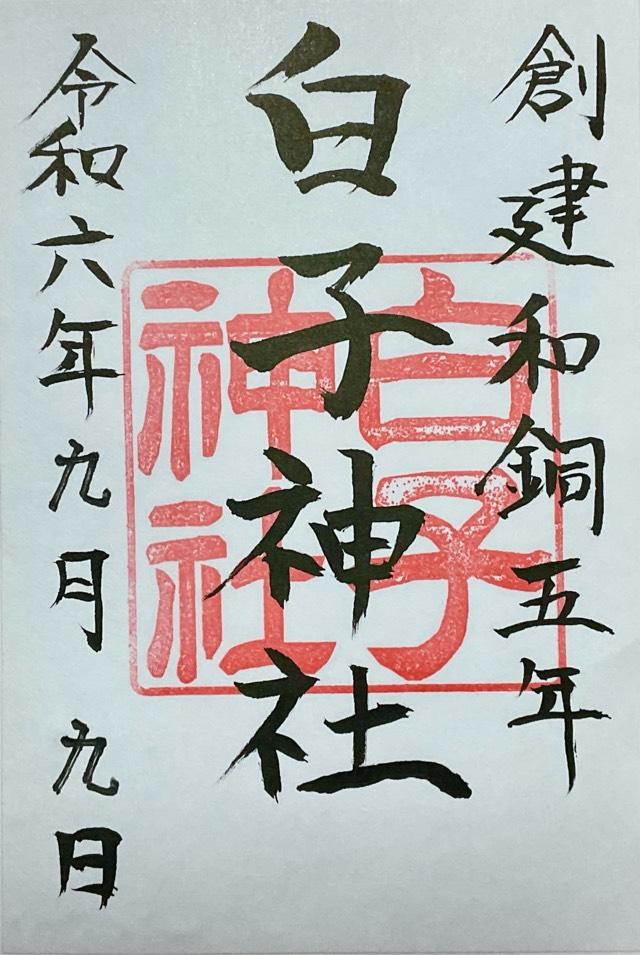 創建和銅五年
白子神社
白子神社
令和六年九月九日